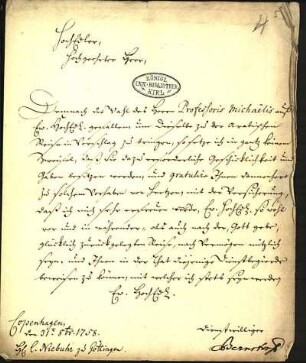 4
Hochedler,
Hochgeehrter Herr,
KÖNIGL.
UNIV. BIBLIOTHEK
KIEL
Demnach die Wahl des Herrn Professoris Michaelis auf
Ew. Hochedl. gefallen um dieselbe zu der Arabischen
Reise in Vorschlag zu bringen, so setze ich in gantz keinen
Zweifel, daß Sie dazu erforderliche Geschicklichkeit und
Gaben besitzen werden, und gratulire Ihnen dannenhero
zu solchem Vorhaben von Hertzen, mit der Versicherung,
daß ich mich sehr erfreuen werde, Ew. Hochedl. so wohl
vor und in währender, als auch nach der, Gott gebe,
glücklich zurückgelegten Reise, nach Vermögen nützlich
seyn, und Ihnen in der That diejenige Dienstbegierde
beweisen zu können, mit welcher ich stets seyn werde
Ew. Hochedl.
Copenhagen,
den 31. 8br. 1758.
Dienstwilliger
Bernstorff
C. Niebuhr zu Göttingen.